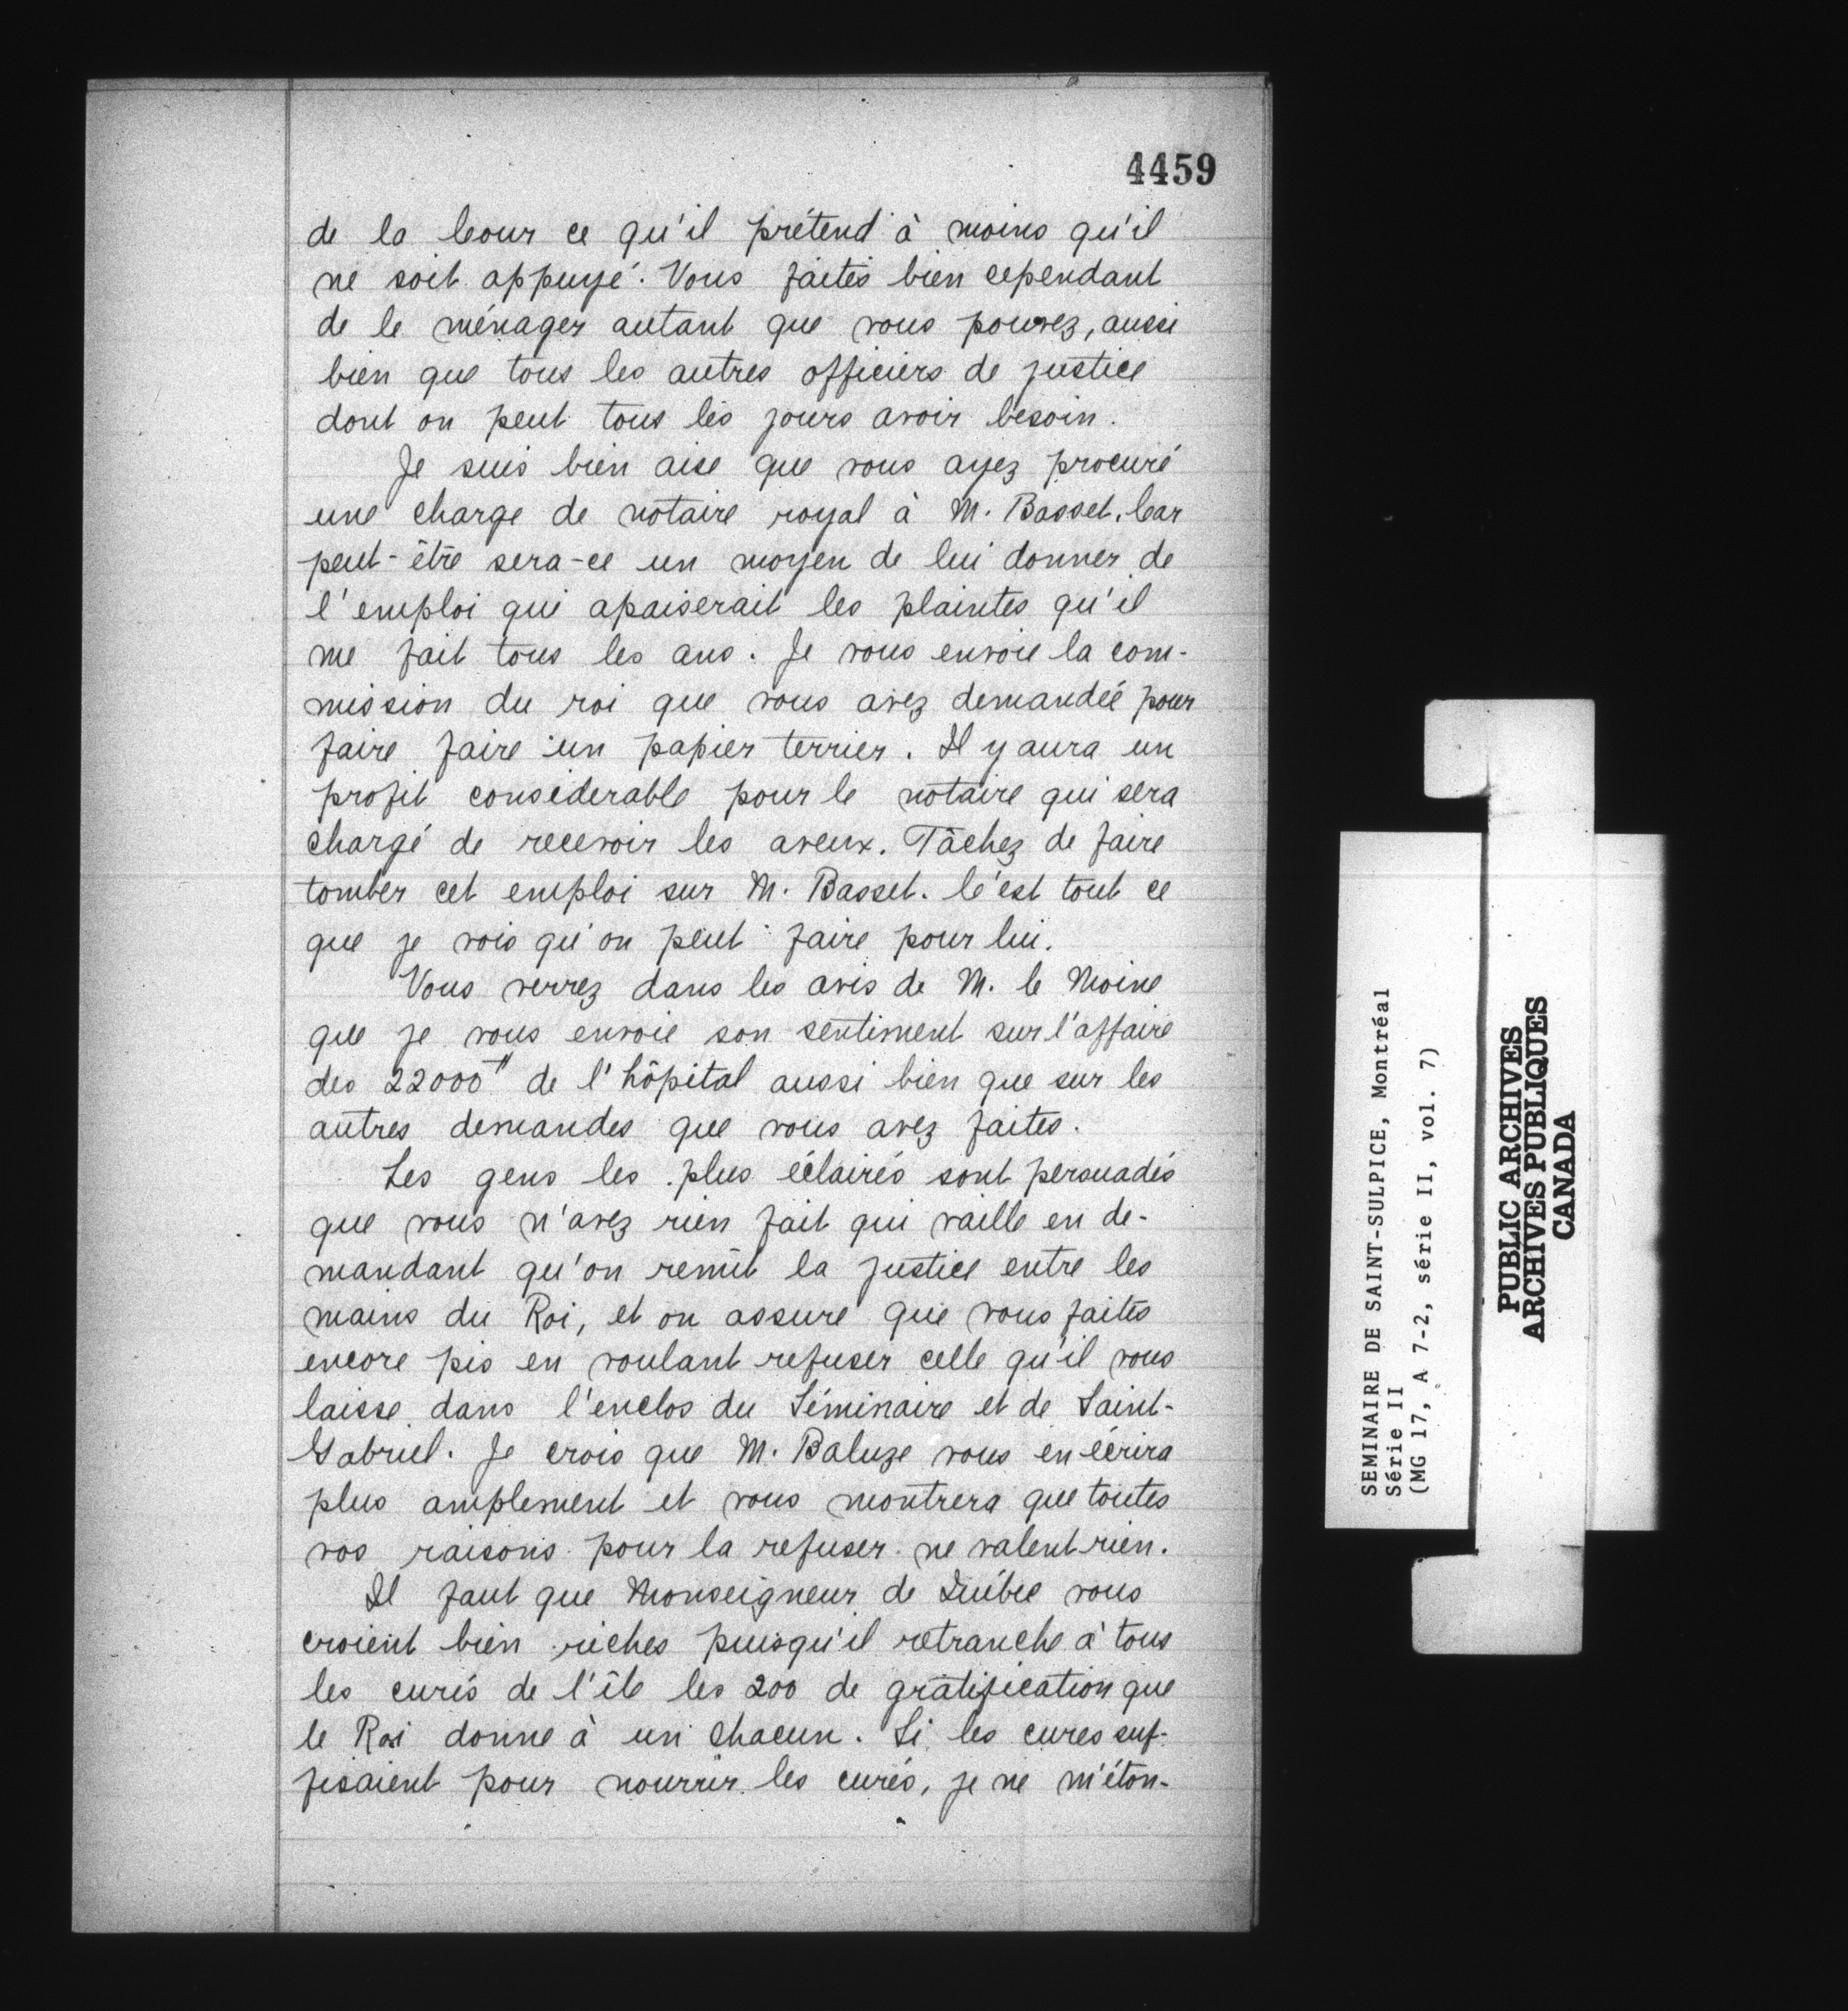 4459
de la Cour ce qu'il prétend à moins qu'il
ne soit appuyé. Vous faites bien cependant
de le ménager autant que vous pouvez, aussi
bien que tous les autres officiers de justice
dont on peut tous les jours avoir besoin.
Je suis bien aise que vous ayez procuré
une charge de notaire royal à M. Basset. Car
peut-être sera-ce un moyen de lui donner de
l'emploi qui apaiserait les plaintes qu'il
me fait tous les ans. Je vous envoie la com-
mission du roi que vous avez demandée pour
faire faire un papier terrier. Il y aura un
profit considerable pour le notaire qui sera
chargé de recevoir les aveux. Tâchez de faire
tomber cet emploi sur M. Basset. C'est tout ce
que je vois qu'on peut faire pour lui.
Vous verrez dans les avis de M. le Moine
que je vous envoie son sentiment sur l'affaire
des 22000# de l'hôpital aussi bien que sur les
autres demandes que vous avez faites.
Les gens les plus éclairés sont persuadés
que vous n'avez rien fait qui vaille en de-
mandant qu'on remît la justice entre les
mains du Roi, et on assure que vous faites
encore pis en voulant refuser celle qu'il vous
laisse dans l'enclos du Séminaire et de Saint-
Gabriel. Je crois que M. Baluze vous en écrira
plus amplement et vous montrera que toutes
vos raisons pour la refuser ne valent rien.
Il faut que Monseigneur de Québec vous
croient bien riches puisqu'il retranche à tous
les curés de l'île les 200 de gratification que
le Roi donne à un chacun. Si les cures suf-
fisaient pour nourrir les curés, je ne m'éton-
SEMINAIRE DE SAINT-SULPICE, Montréal
Série II
(MG 17, A 7-2, série II, vol. 7)
PUBLIC ARCHIVES
ARCHIVES PUBLIQUES
CANADA